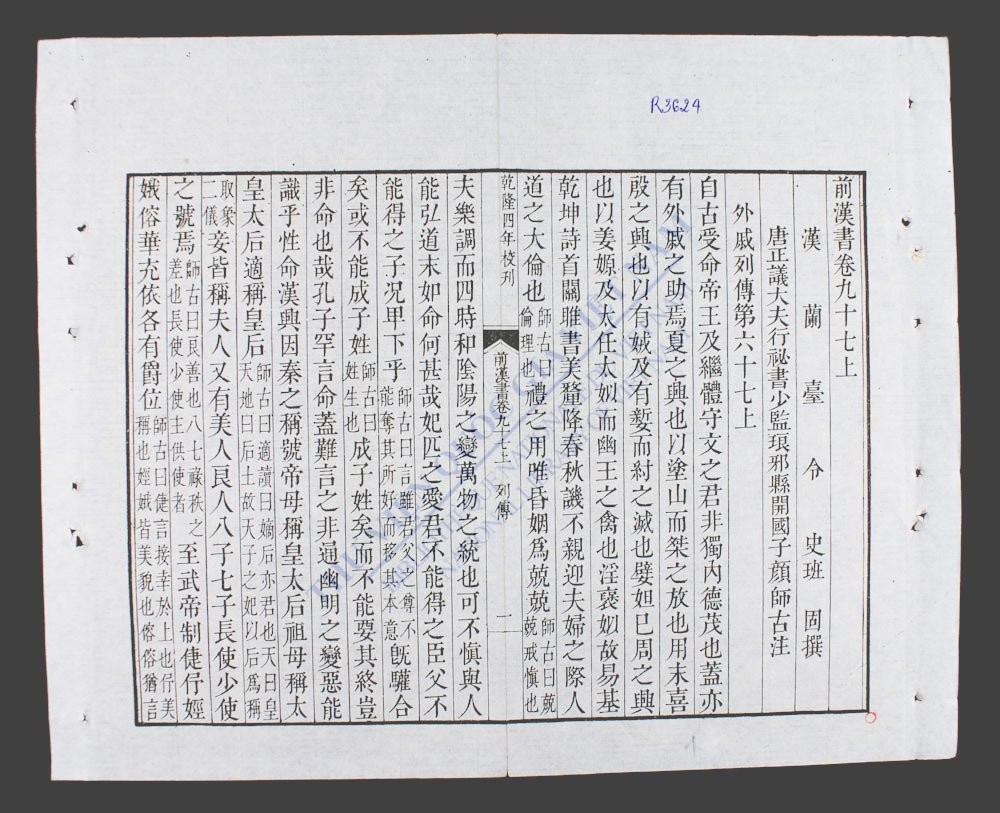 R3624
前漢書卷九十七上
漢蘭臺令史班固撰
唐正議大夫行祕書少監琅邪縣開國子顏師古注
外戚列傳第六十七上
自古受命帝王及繼體守文之君非獨內德茂也蓋亦
有外戚之助焉夏之興也以塗山而桀之放也用末喜
殷之興也以有娀及有㜪而紂之滅也嬖妲巳周之興
也以姜嫄及太任太姒而幽王之禽也淫襃姒故易基
乾坤詩首關雎書美釐降春秋譏不親迎夫婦之際人
道之大倫也師古曰倫理也禮之用唯昏姻爲兢兢師古曰兢兢戒愼也
乾隆四年校刊
前漢書卷九十七上 列傳
一
夫樂調而四時和陰陽之變萬物之統也可不愼與人
能弘道末如命何甚哉妃匹之愛君不能得之臣父不
能得之子况卑下乎師古曰言雖君父之尊不能奪其所好而移其本意旣驩合
矣或不能成子姓師古曰姓生也成子姓矣而不能要其終豈
非命也哉孔子罕言命蓋難言之非通幽明之變惡能
識乎性命漢興因秦之稱號帝母稱皇太后祖母稱太
皇太后適稱皇后師古曰適讀曰嫡后亦君也天曰皇天地曰后土故天子之妃以后爲稱
取象二儀妾皆稱夫人又有美人良人八子七子長使少使
之號焉師古曰良善也八七祿秩之差也長使少使主供使者至武帝制倢伃娙
娥傛華充依各有爵位師古曰倢言接幸於上也伃美稱也娙娥皆美貌也傛傛猶言